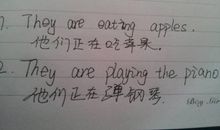 1. They are eating apples.
他们正在吃苹果.
2. They are playing the piano
他们正在弹钢琴.